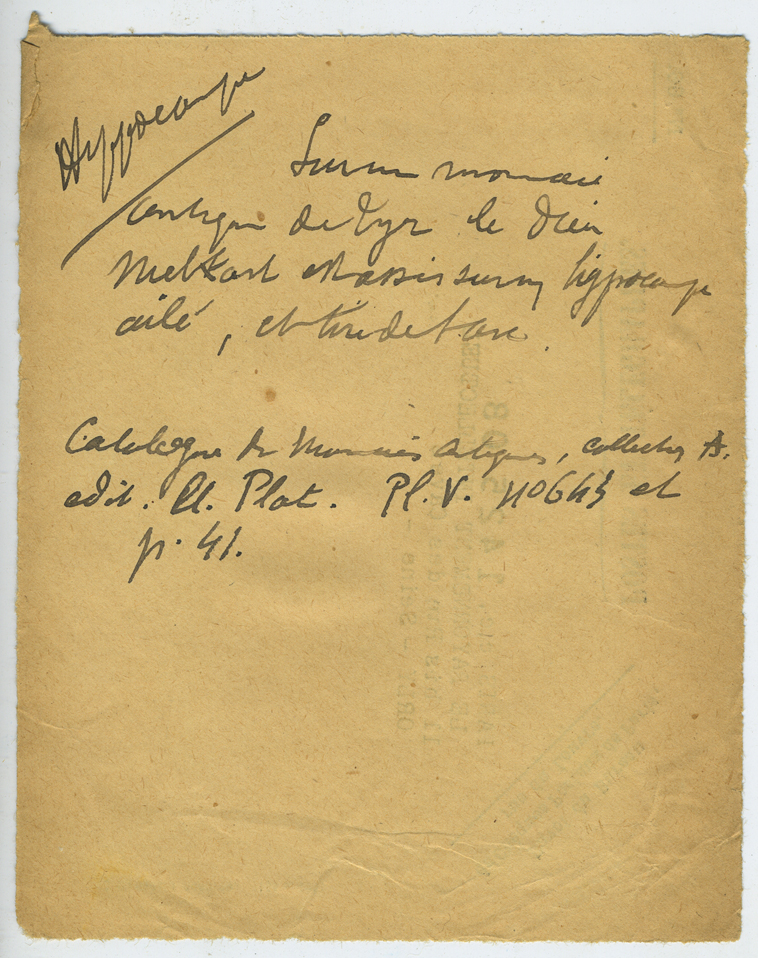 Hyppocampe
Sur un monnaie
antique de Tyr le Dieu
Melkart est assis sur un hyppocampe
ailé, et tire de l'arc.
Catalogue de Monnaies antiques, collection A.
edit. Cl. Plat. Pl. V. no 643 et
p. 41.